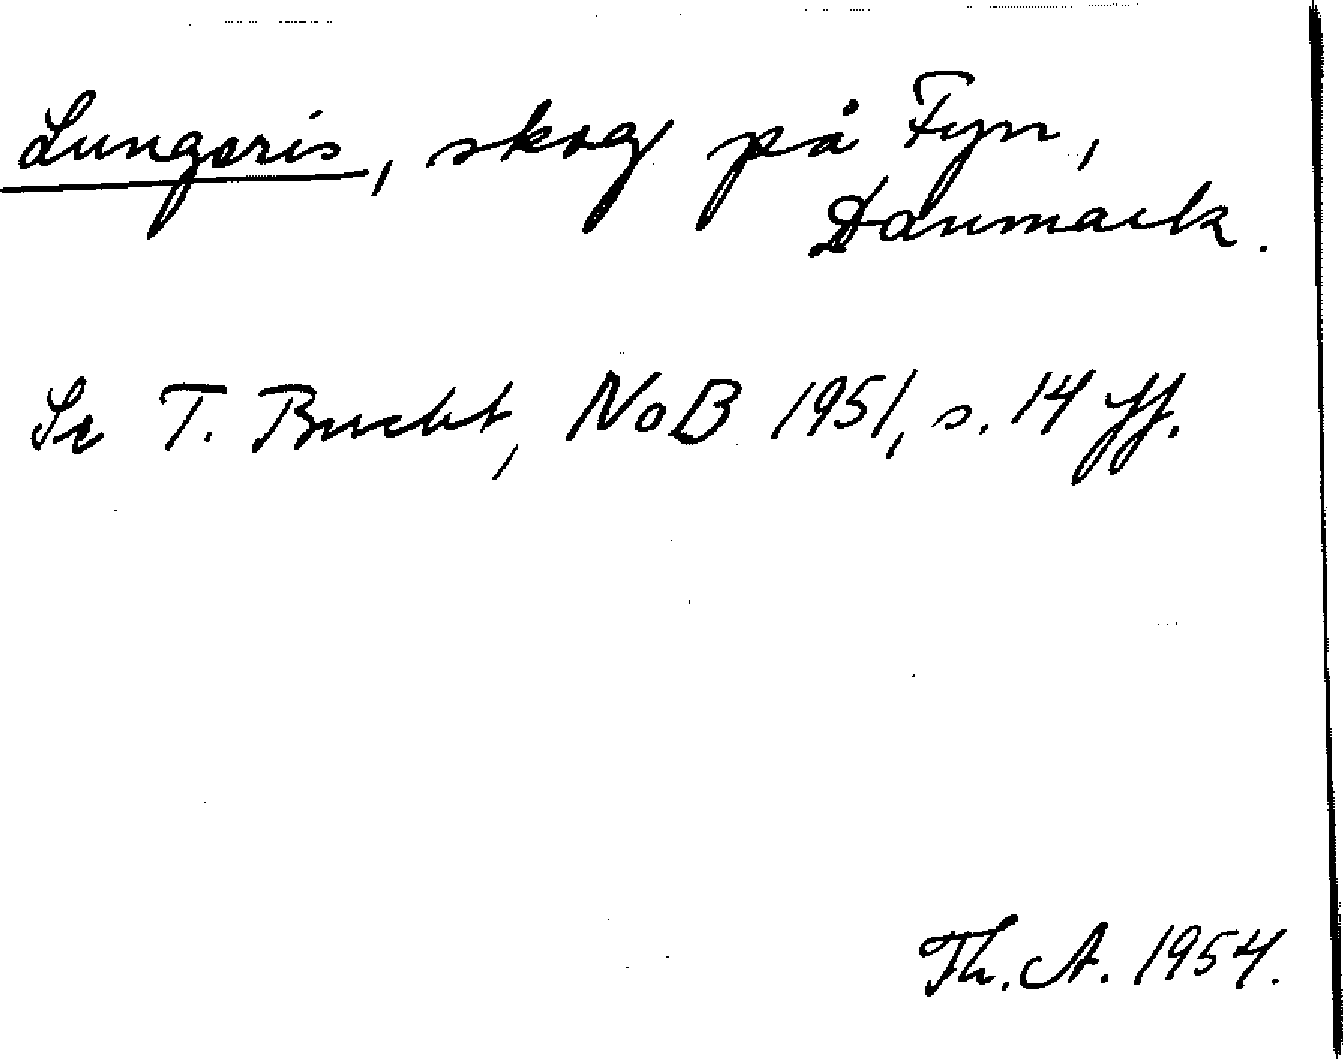 Lungeris, skog på Fyn,
Danmark.
Se T. Bucht, NoB 1951, s. 14 ff.
Th. A. 1954.